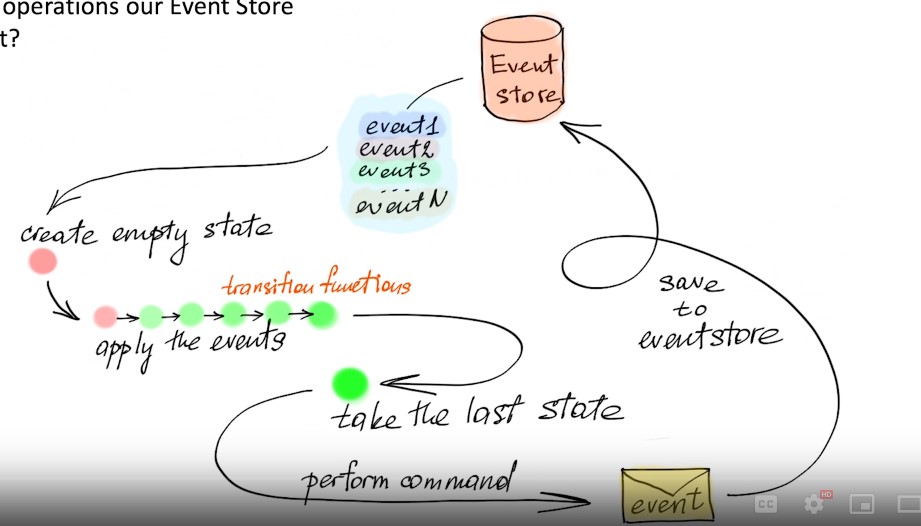 operations our Event Store
t?
Event
store
event1
event2
event3
...
event N
create empty state
transition functions
apply the events
take the last state
perform command
event
save
to
eventstore
CC
HD